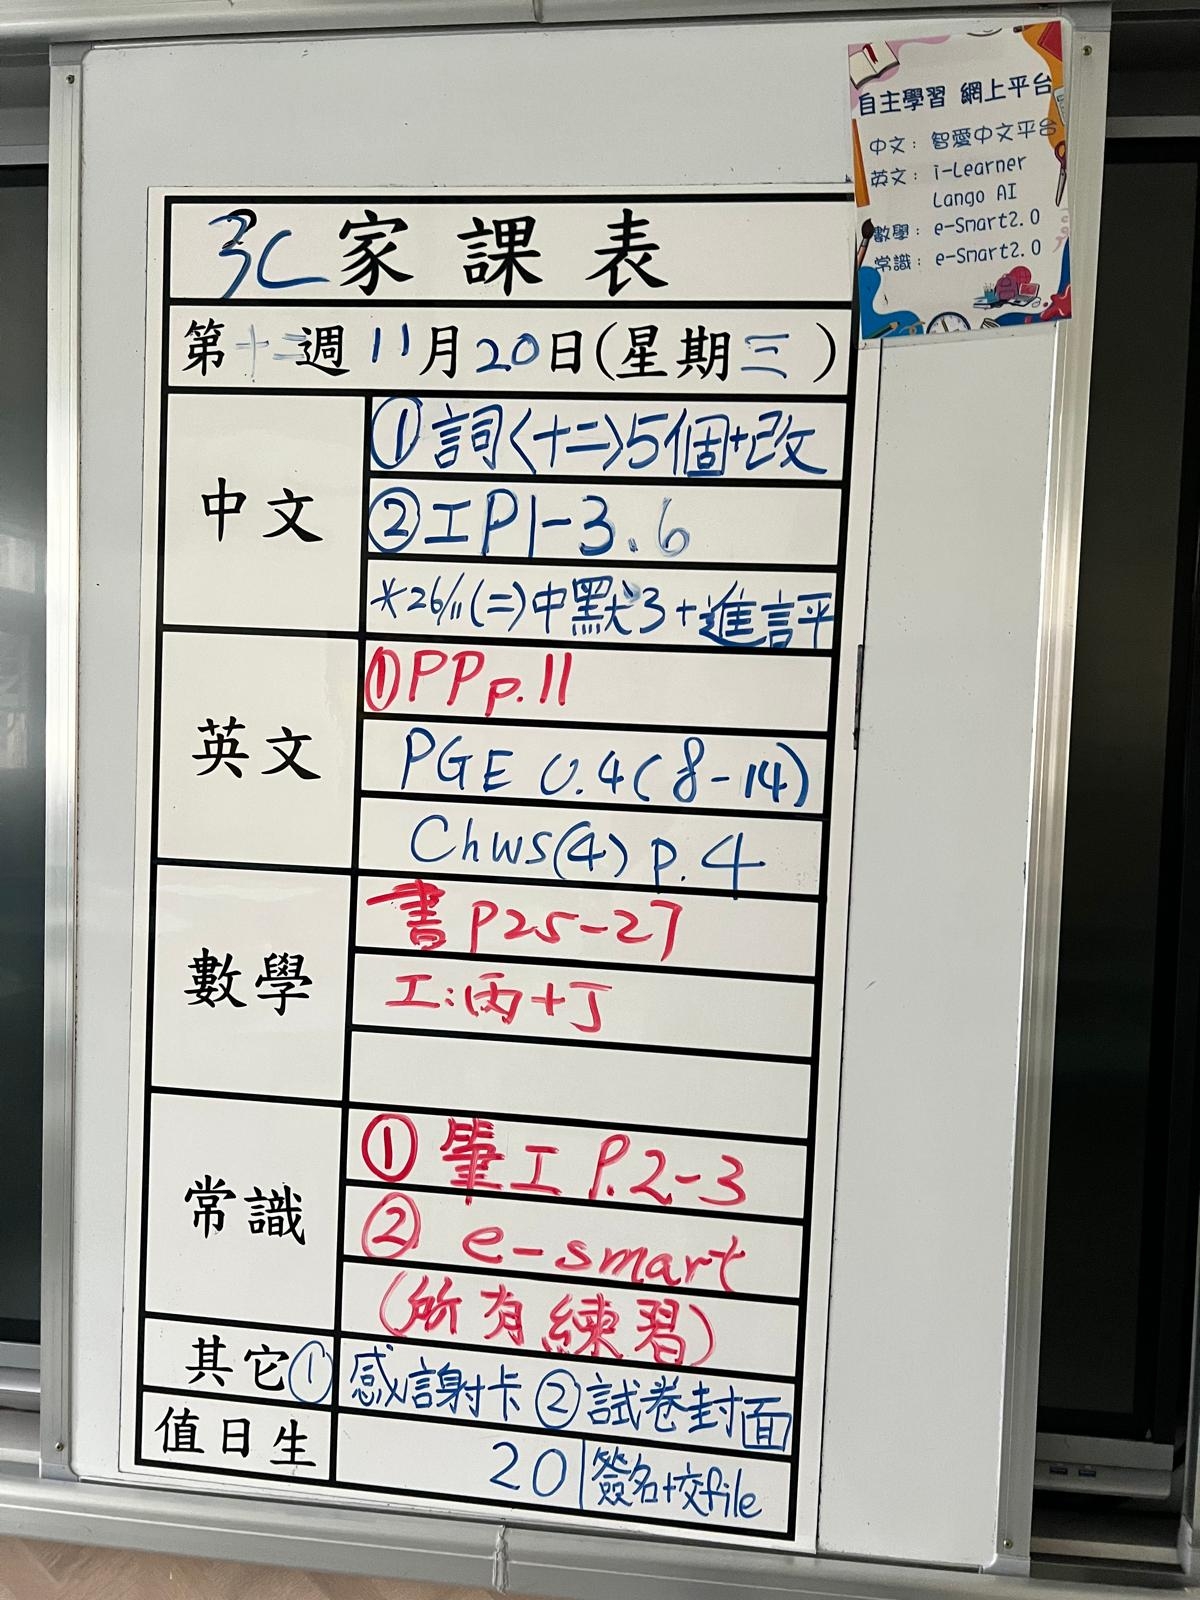 自主學習 網上平台
中文：智愛中文平台
英文：i-Learner
Lango AI
數學：e-Smart2.0
常識：e-Smart2.0
3C家課表
第十二週 11月20日(星期三)
中文
①詞〈十二〉5個+改
②工P1-3.6
*26/11(二)中默3+進評
英文
①PP p.11
PGE U.4(8-14)
Chws(4) p.4
數學
書P25-27
工:丙+丁
常識
①筆工P.2-3
②e-smart
(所有練習)
其它①感謝卡②試卷封面
值日生 20|簽名+交file